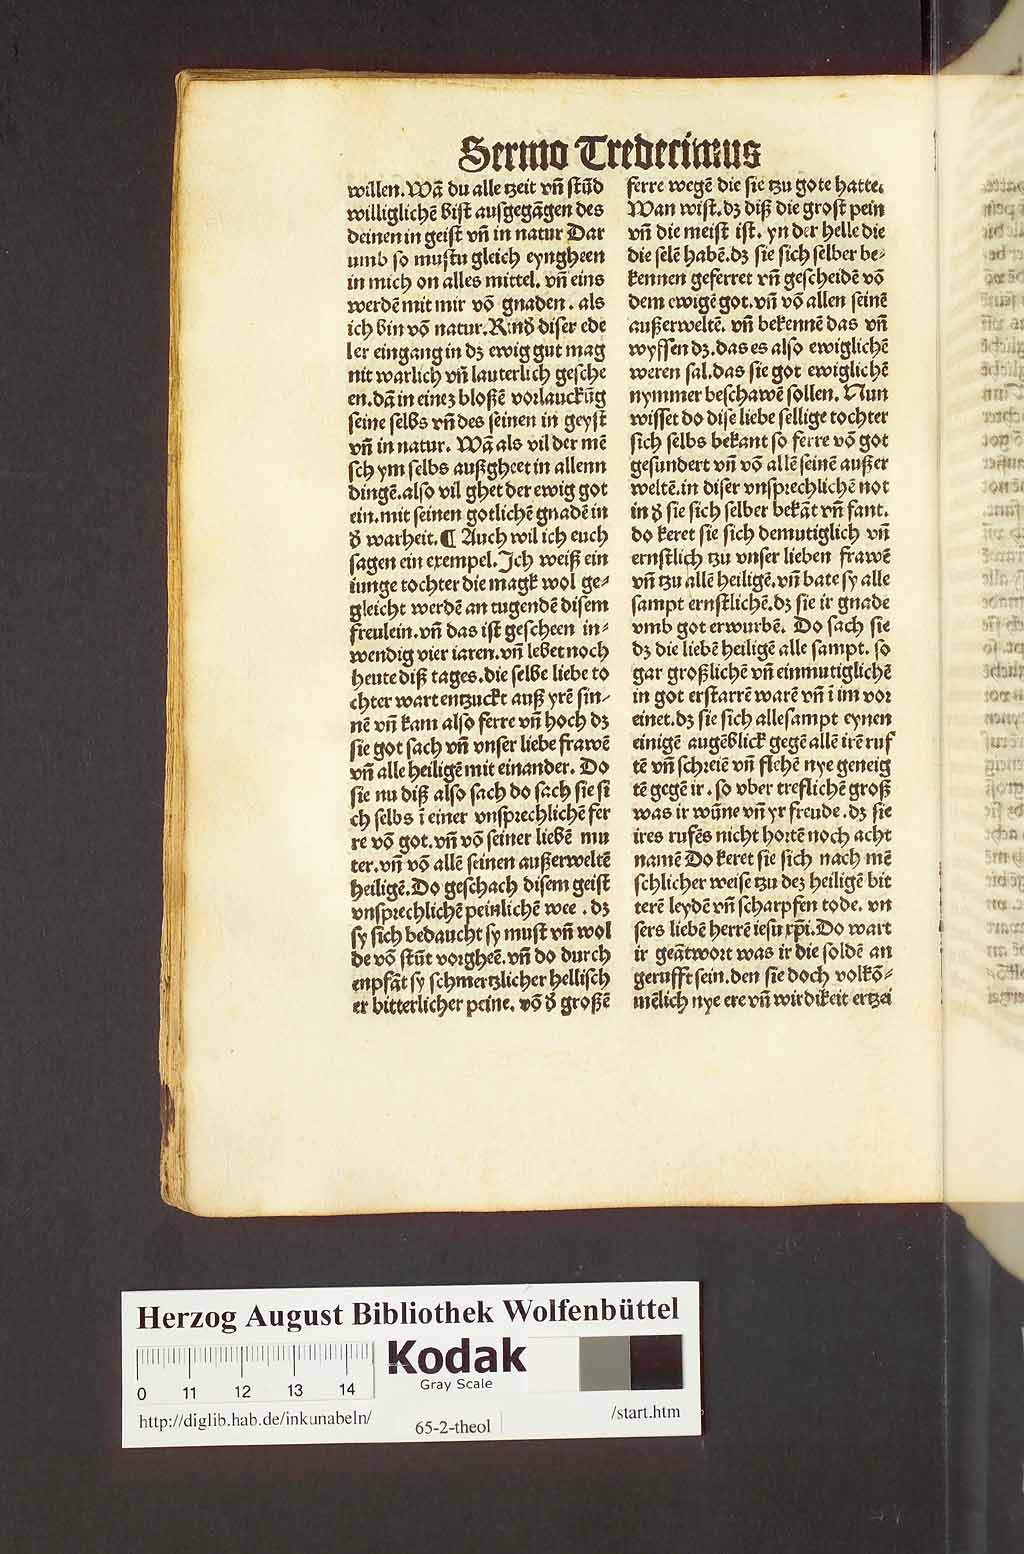 Sermo Tredecimus
willen. Wañ du alle tzeit vñ stũd
williglichẽ bist ausgegãgen des
deinen in geist vñ in natur Dar
umb so mustu gleich eyngheen
in mich on alles mittel. vñ eins
werdẽ mit mir võ gnaden. als
ich bin võ natur. Kinđ diser ede
ler eingang in dz ewig gut mag
nit warlich vñ lauterlich gesche
en. dañ in einez bloßẽ vorlauckũg
seine selbs vñ des seinen in geyst
vñ in natur. Wañ als vil der mẽ
sch ym selbs außgheet in allenn
dingẽ. also vil ghet der ewig got
ein. mit seinen gotlichẽ gnadẽ in
đ warheit. ¶ Auch wil ich euch
sagen ein exempel. Jch weiß ein
iunge tochter die magk wol ge⸗
gleicht werdẽ an tugendẽ disem
freulein. vñ das ist gescheen in⸗
wendig vier iaren. vñ lebet noch
heute diß tages. die selbe liebe to
chter wart entzuckt auß yrẽ sin⸗
nẽ vñ kam also ferre vñ hoch dz
sie got sach vñ vnser liebe frawẽ
vñ alle heiligẽ mit einander. Do
sie nu diß also sach do sach sie si
ch selbs ĩ einer vnsprechlichẽ fer
re võ got. vñ võ seiner liebẽ mu
ter. vñ võ allẽ seinen außerweltẽ
heiligẽ. Do geschach disem geist
vnsprechlichẽ peinlichẽ wee. dz
sy sich bedaucht sy must vñ wol
de võ stũt vorgheẽ. vñ do durch
enpfãt sy schmertzlicher hellisch
er bitterlicher peine. võ đ großẽ
ferre wegẽ die sie tzu gote hatte.
Wan wist. dz diß die grost pein
vñ die meist ist. yn der helle die
die selẽ habẽ. dz sie sich selber be⸗
kennen geferret vñ gescheidẽ võ
dem ewigẽ got. vñ võ allen seinẽ
außerweltẽ. vñ bekennẽ das vñ
wyssen dz. das es also ewiglichẽ
weren sal. das sie got ewiglichẽ
nymmer beschawẽ sollen. Nun
wisset do dise liebe sellige tochter
sich selbs bekant so ferre võ got
gesundert vñ võ allẽ seinẽ außer
weltẽ. in diser vnsprechlichẽ not
in đ sie sich selber bekãt vñ fant.
do keret sie sich demutiglich vñ
ernstlich tzu vnser lieben frawẽ
vñ tzu allẽ heiligẽ. vñ bate sy alle
sampt ernstlichẽ. dz sie ir gnade
vmb got erwurbẽ. Do sach sie
dz die liebẽ heiligẽ alle sampt. so
gar großlichẽ vñ einmutiglichẽ
in got erstarrẽ warẽ vñ ĩ im vor
einet. dz sie sich allesampt eynen
einigẽ augẽblick gegẽ allẽ irẽ ruf
tẽ vñ schreiẽ vñ flehẽ nye geneig
tẽ gegẽ ir. so vber treflichẽ groß
was ir wũne vñ yr freude. dz sie
ires rufẽs nicht hortẽ noch acht
namẽ Do keret sie sich nach mẽ
schlicher weise tzu dez heiligẽ bit
terẽ leydẽ vñ scharpfen tode. vn
sers liebẽ herrẽ iesu xp̃i. Do wart
ir geãtwort was ir die soldẽ an
gerufft sein. den sie doch volkõ⸗
mẽlich nye ere vñ wirdikeit ertzei
Herzog August Bibliothek Wolfenbüttel
Kodak
Gray Scale
0 11 12 13 14
http://diglib.hab.de/inkunabeln/
65-2-theol
/start.htm